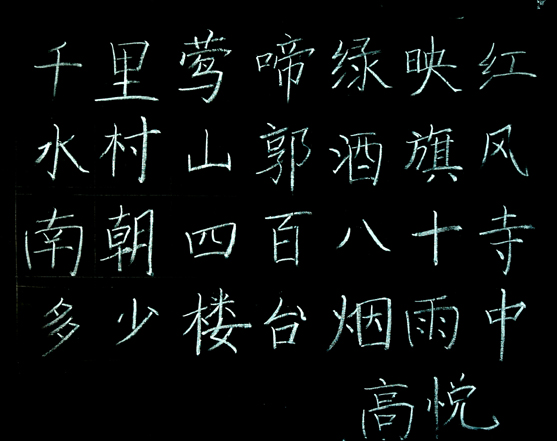 千里莺啼绿映红
水村山郭酒旗风
南朝四百八十寺
多少楼台烟雨中
高悦